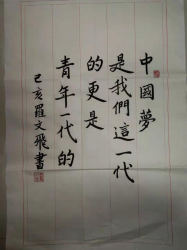 中國夢
是我們這一代
的更是
青年一代的
己亥羅文飛書